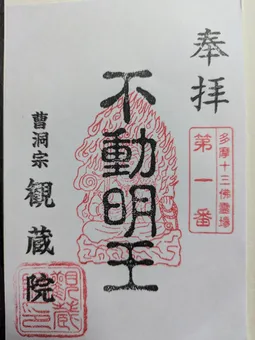 奉拝
多摩十三佛霊場
第一番
不動明王
曹洞宗
観蔵院